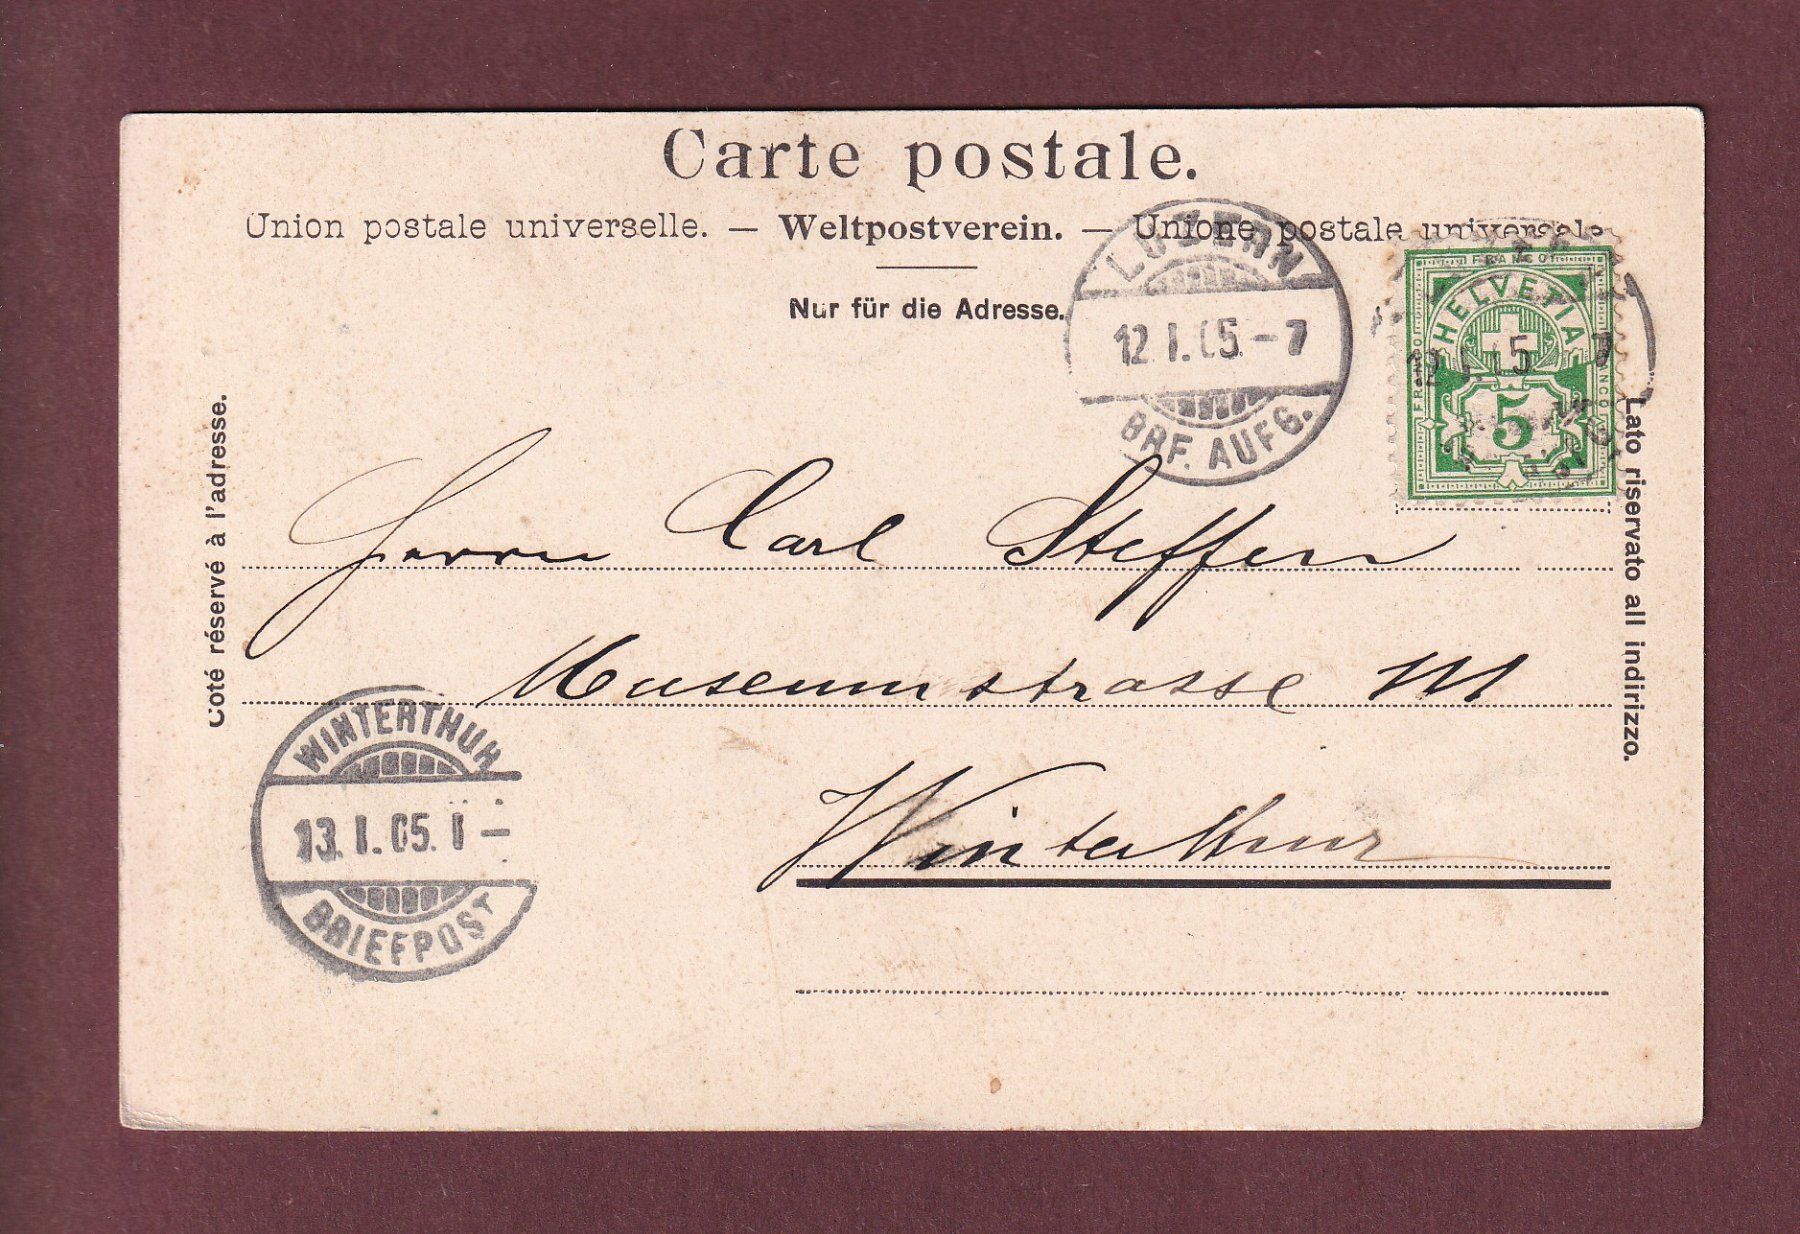 Carte postale.
Union postale universelle. — Weltpostverein. — Unione postale universale
Nur für die Adresse.
LUZERN
12. I. 05. – 7
BRF. AUFG.
FRANCO
HELVETIA
FRANCO
FRANCO
5
12. I. 05 7
Coté réservé à l'adresse.
Lato riservato all indirizzo.
Herrn Carl Steffen
Museumstrasse
Winterthur
WINTERTHUR
13. I. 05. –
BRIEFPOST